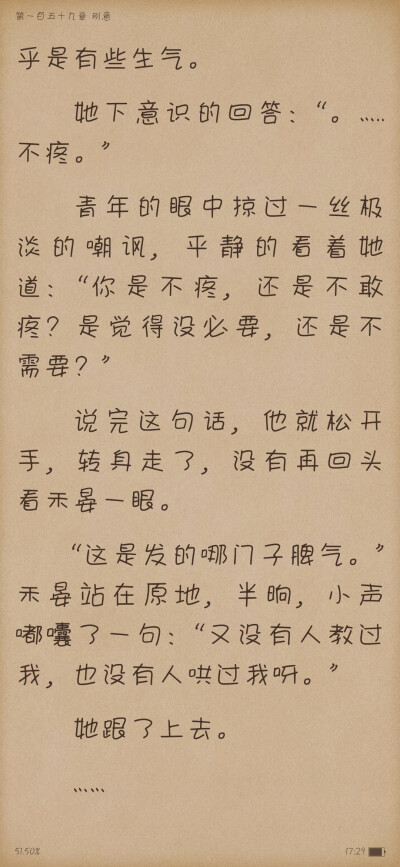 第一百五十九章 刚意
乎是有些生气。
她下意识的回答：“。……
不疼。”
青年的眼中掠过一丝极
淡的嘲讽，平静的看着她
道：“你是不疼，还是不敢
疼？是觉得没必要，还是不
需要？”
说完这句话，他就松开
手，转身走了，没有再回头
看禾晏一眼。
“这是发的哪门子脾气。”
禾晏站在原地，半晌，小声
嘟囔了一句：“又没有人教过
我，也没有人哄过我呀。”
她跟了上去。
……
51.50%
17:29